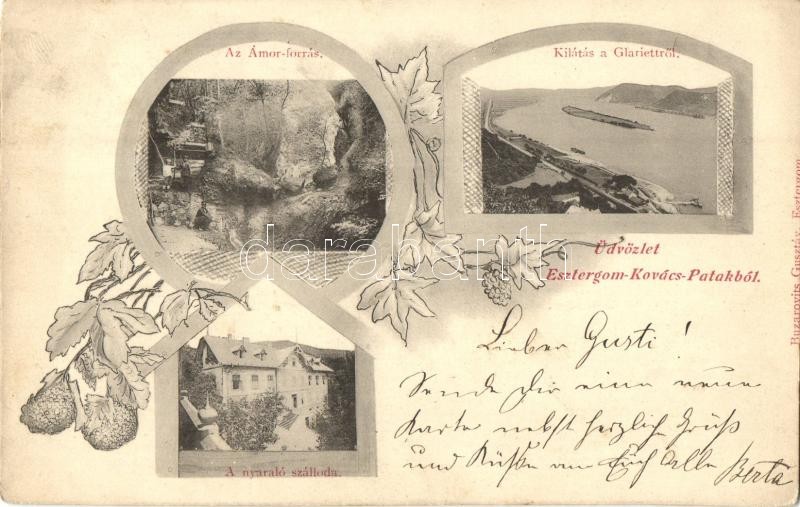 Az Ámor-forrás.
Kilátás a Glariettről.
Üdvözlet
Esztergom-Kovács-Patakból.
A nyaraló szálloda.
Lieber Gusti!
Sende Dir eine neue
Karte nebst herzliche Grüß
und Küße an Euch Alle Berta
Buzarovits Gusztáv, Esztergom.
darabanth